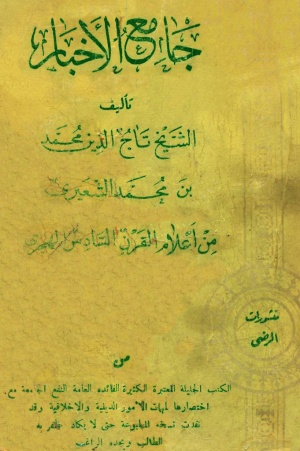 جامع الأخبار
تأليف
الشيخ تاج الدين محمد
بن محمد الشعيري
من أعلام القرن السادس الهجري
منشورات
الرضى
من
الكتب الجليلة المعتبرة الكثيرة الفائده العامة النفع الجامعة مع
اختصارها لمهمات الأمور الدينية والأخلاقية وقد
نفدت نسخه المطبوعة حتى لا يكاد يظفر به
الطالب ويجده الراغب